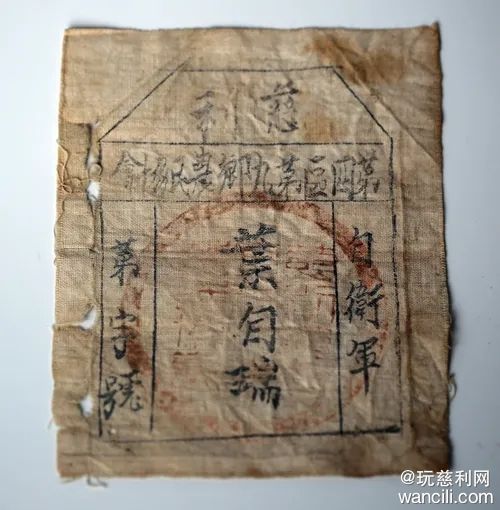 慈利
第四區第九鄉農民協會
自衛軍
葉旬瑞
第字號
@玩慈利网
wancili.com